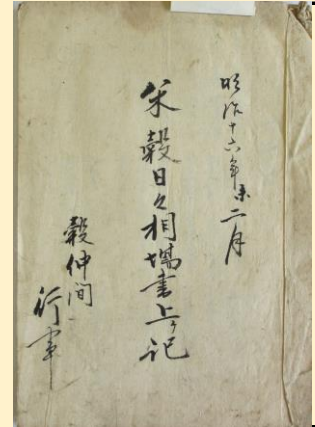 明治十六年未二月
米穀日々相場書上ケ記
穀仲間
行事